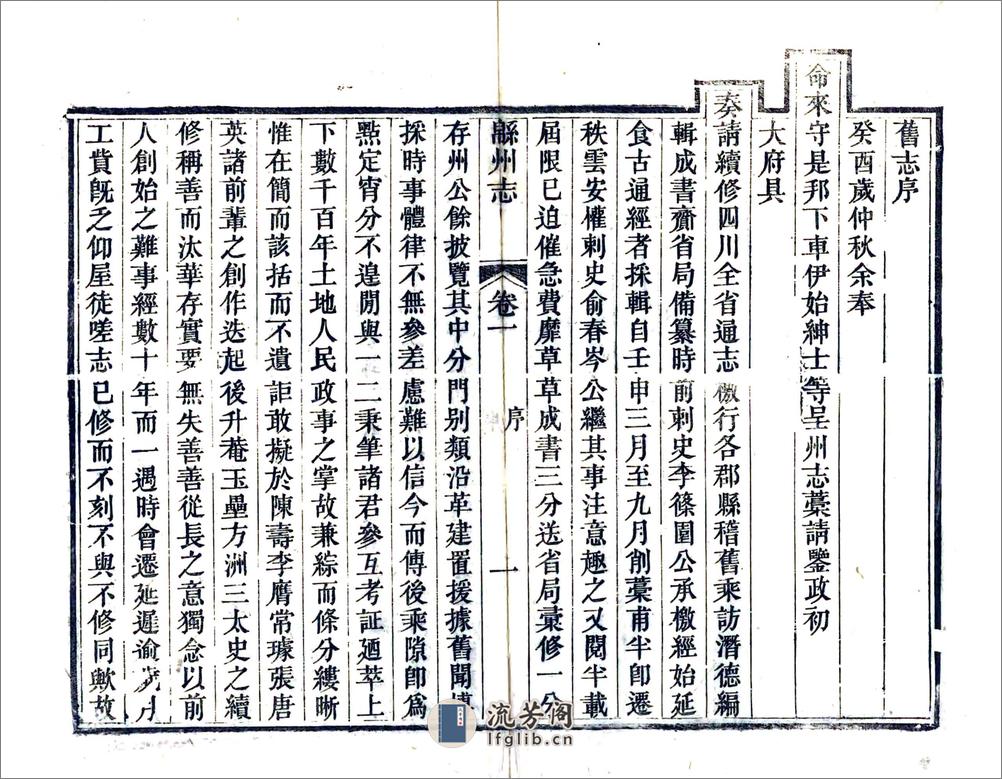 舊志序
癸酉歲仲秋余奉
命來守是邦下車伊始紳士等呈州志藁請鑒政初
大府具
奏請續修四川全省通志檄行各郡縣稽舊乘訪潛德編
輯成書齎省局備纂時前刺史李篠園公承檄經始延
食古通經者採輯自壬申三月至九月削藁甫半卽遷
秩雲安權刺史俞春岑公繼其事注意趣之又閱半載
屆限已迫催急費靡草草成書三分送省局彙修一分
緜州志 卷一 序 一
存州公餘披覽其中分門别類沿革建置援據舊聞博
採時事體律不無參差慮難以信今而傳後乘隙卽爲
點定宵分不遑閒與一二秉筆諸君參互考証廼萃上
下數千百年土地人民政事之掌故兼綜而條分縷晰
惟在簡而該括而不遺詎敢擬於陳壽李膺常璩張唐
英諸前輩之創作迭起後升菴玉壘方洲三太史之續
修稱善而汰華存實要無失善善從長之意獨念以前
人創始之難事經數十年而一遇時會遷延遲逾歲月
工費旣乏仰屋徒嗟志已修而不刻不與不修同歟故
流芳阁
lfglib.cn